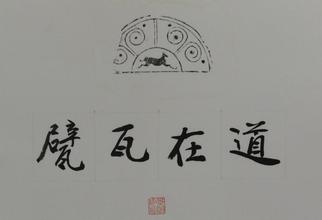 道在瓦甓